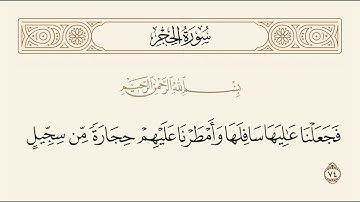 سُورَةُ الحِجْرِ
بِسْمِ اللَّهِ الرَّحْمَٰنِ الرَّحِيمِ
فَجَعَلْنَا عَٰلِيَهَا سَافِلَهَا وَأَمْطَرْنَا عَلَيْهِمْ حِجَارَةً مِّن سِجِّيلٍ
٧٤